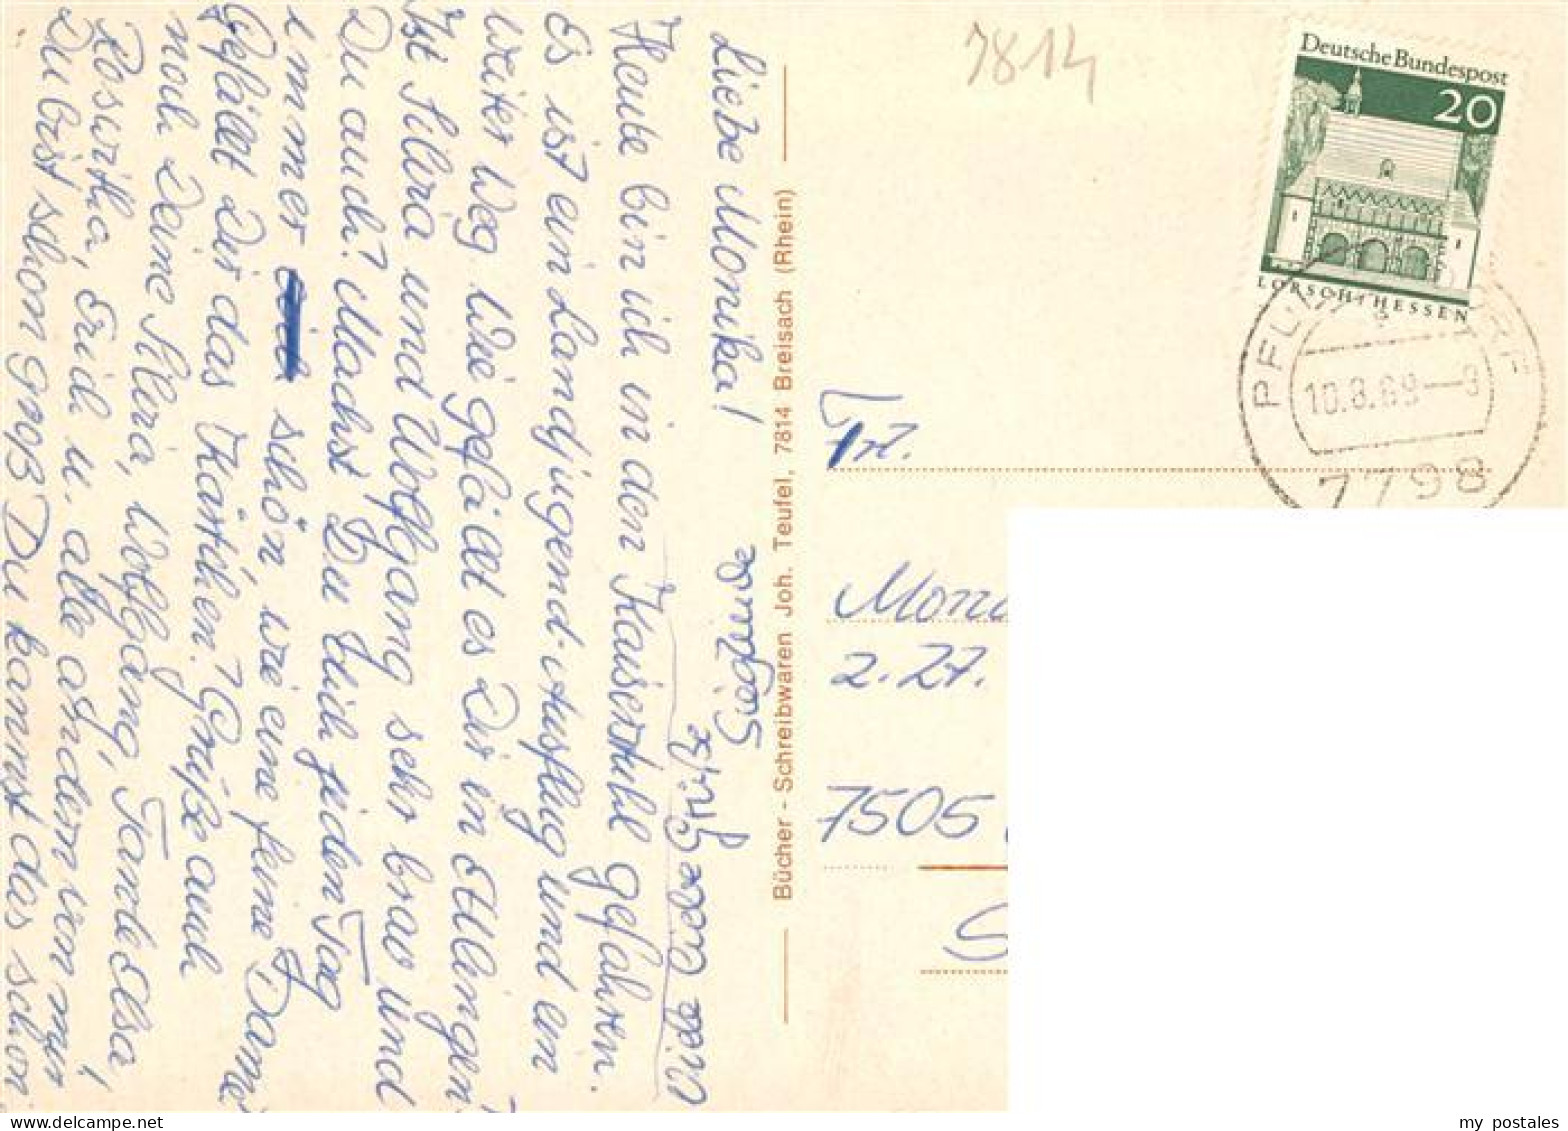 Liebe Monika!
Heute bin ich in den Kaiserstuhl gefahren.
Es ist ein Landjugend-Ausflug und ein
weiter Weg. Wie gefällt es Dir in Ettlingen?
Ist Silvia und Wolfgang sehr brav und
Du auch? Machst Du Dich jeden Tag
immer schön, wie eine feine Dame?
Gefällt Dir das Kästchen? Grüße auch
noch Deine Silvia, Wolfgang, Tante Elsa,
Roswitha, Erich u. alle andern von mir
Du bist schon groß Du kannst das schon
Viele Grüße
Siegmunde
Bücher - Schreibwaren Joh. Teufel, 7814 Breisach (Rhein)
7814
Deutsche Bundespost
20
LORSCH / HESSEN
10.8.69 - 9
7798
Frl.
2. Zt.
7505